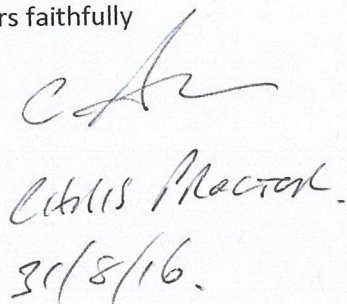 rs faithfully
CHRIS PROCTOR.
31/8/16.